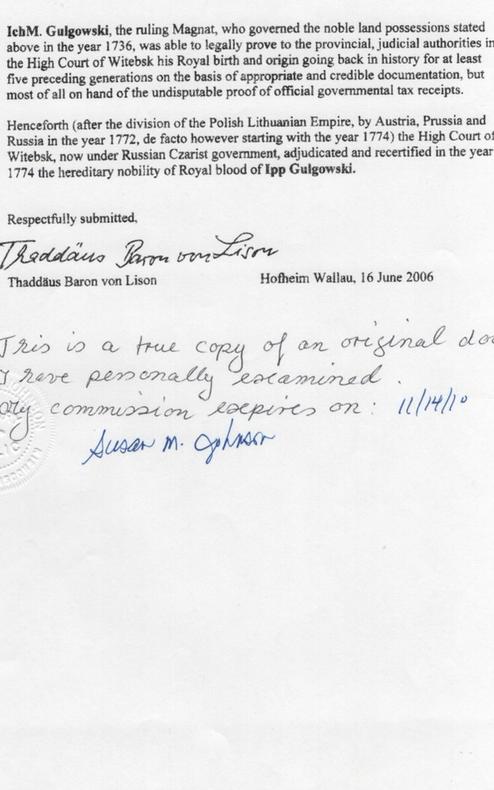 IchM. Gulgowski, the ruling Magnat, who governed the noble land possessions stated
above in the year 1736, was able to legally prove to the provincial, judicial authorities in
the High Court of Witebsk his Royal birth and origin going back in history for at least
five preceding generations on the basis of appropriate and credible documentation, but
most of all on hand of the undisputable proof of official governmental tax receipts.
Henceforth (after the division of the Polish Lithuanian Empire, by Austria, Prussia and
Russia in the year 1772, de facto however starting with the year 1774) the High Court of
Witebsk, now under Russian Czarist government, adjudicated and recertified in the year
1774 the hereditary nobility of Royal blood of Ipp Gulgowski.
Respectfully submitted,
Thaddäus Baron von Lison
Thaddäus Baron von Lison Hofheim Wallau, 16 June 2006
This is a true copy of an original
I have personally examined.
commission expires on: 11/14/10
Susan M. Johnson